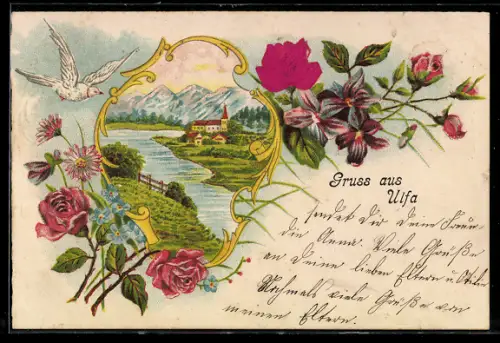 Gruss aus
Ulfa
sendet dir deine Freun-
din Anna. Viele Grüße
an Deine lieben Eltern u.
Nochmals viele Grüße von
meinen Eltern.